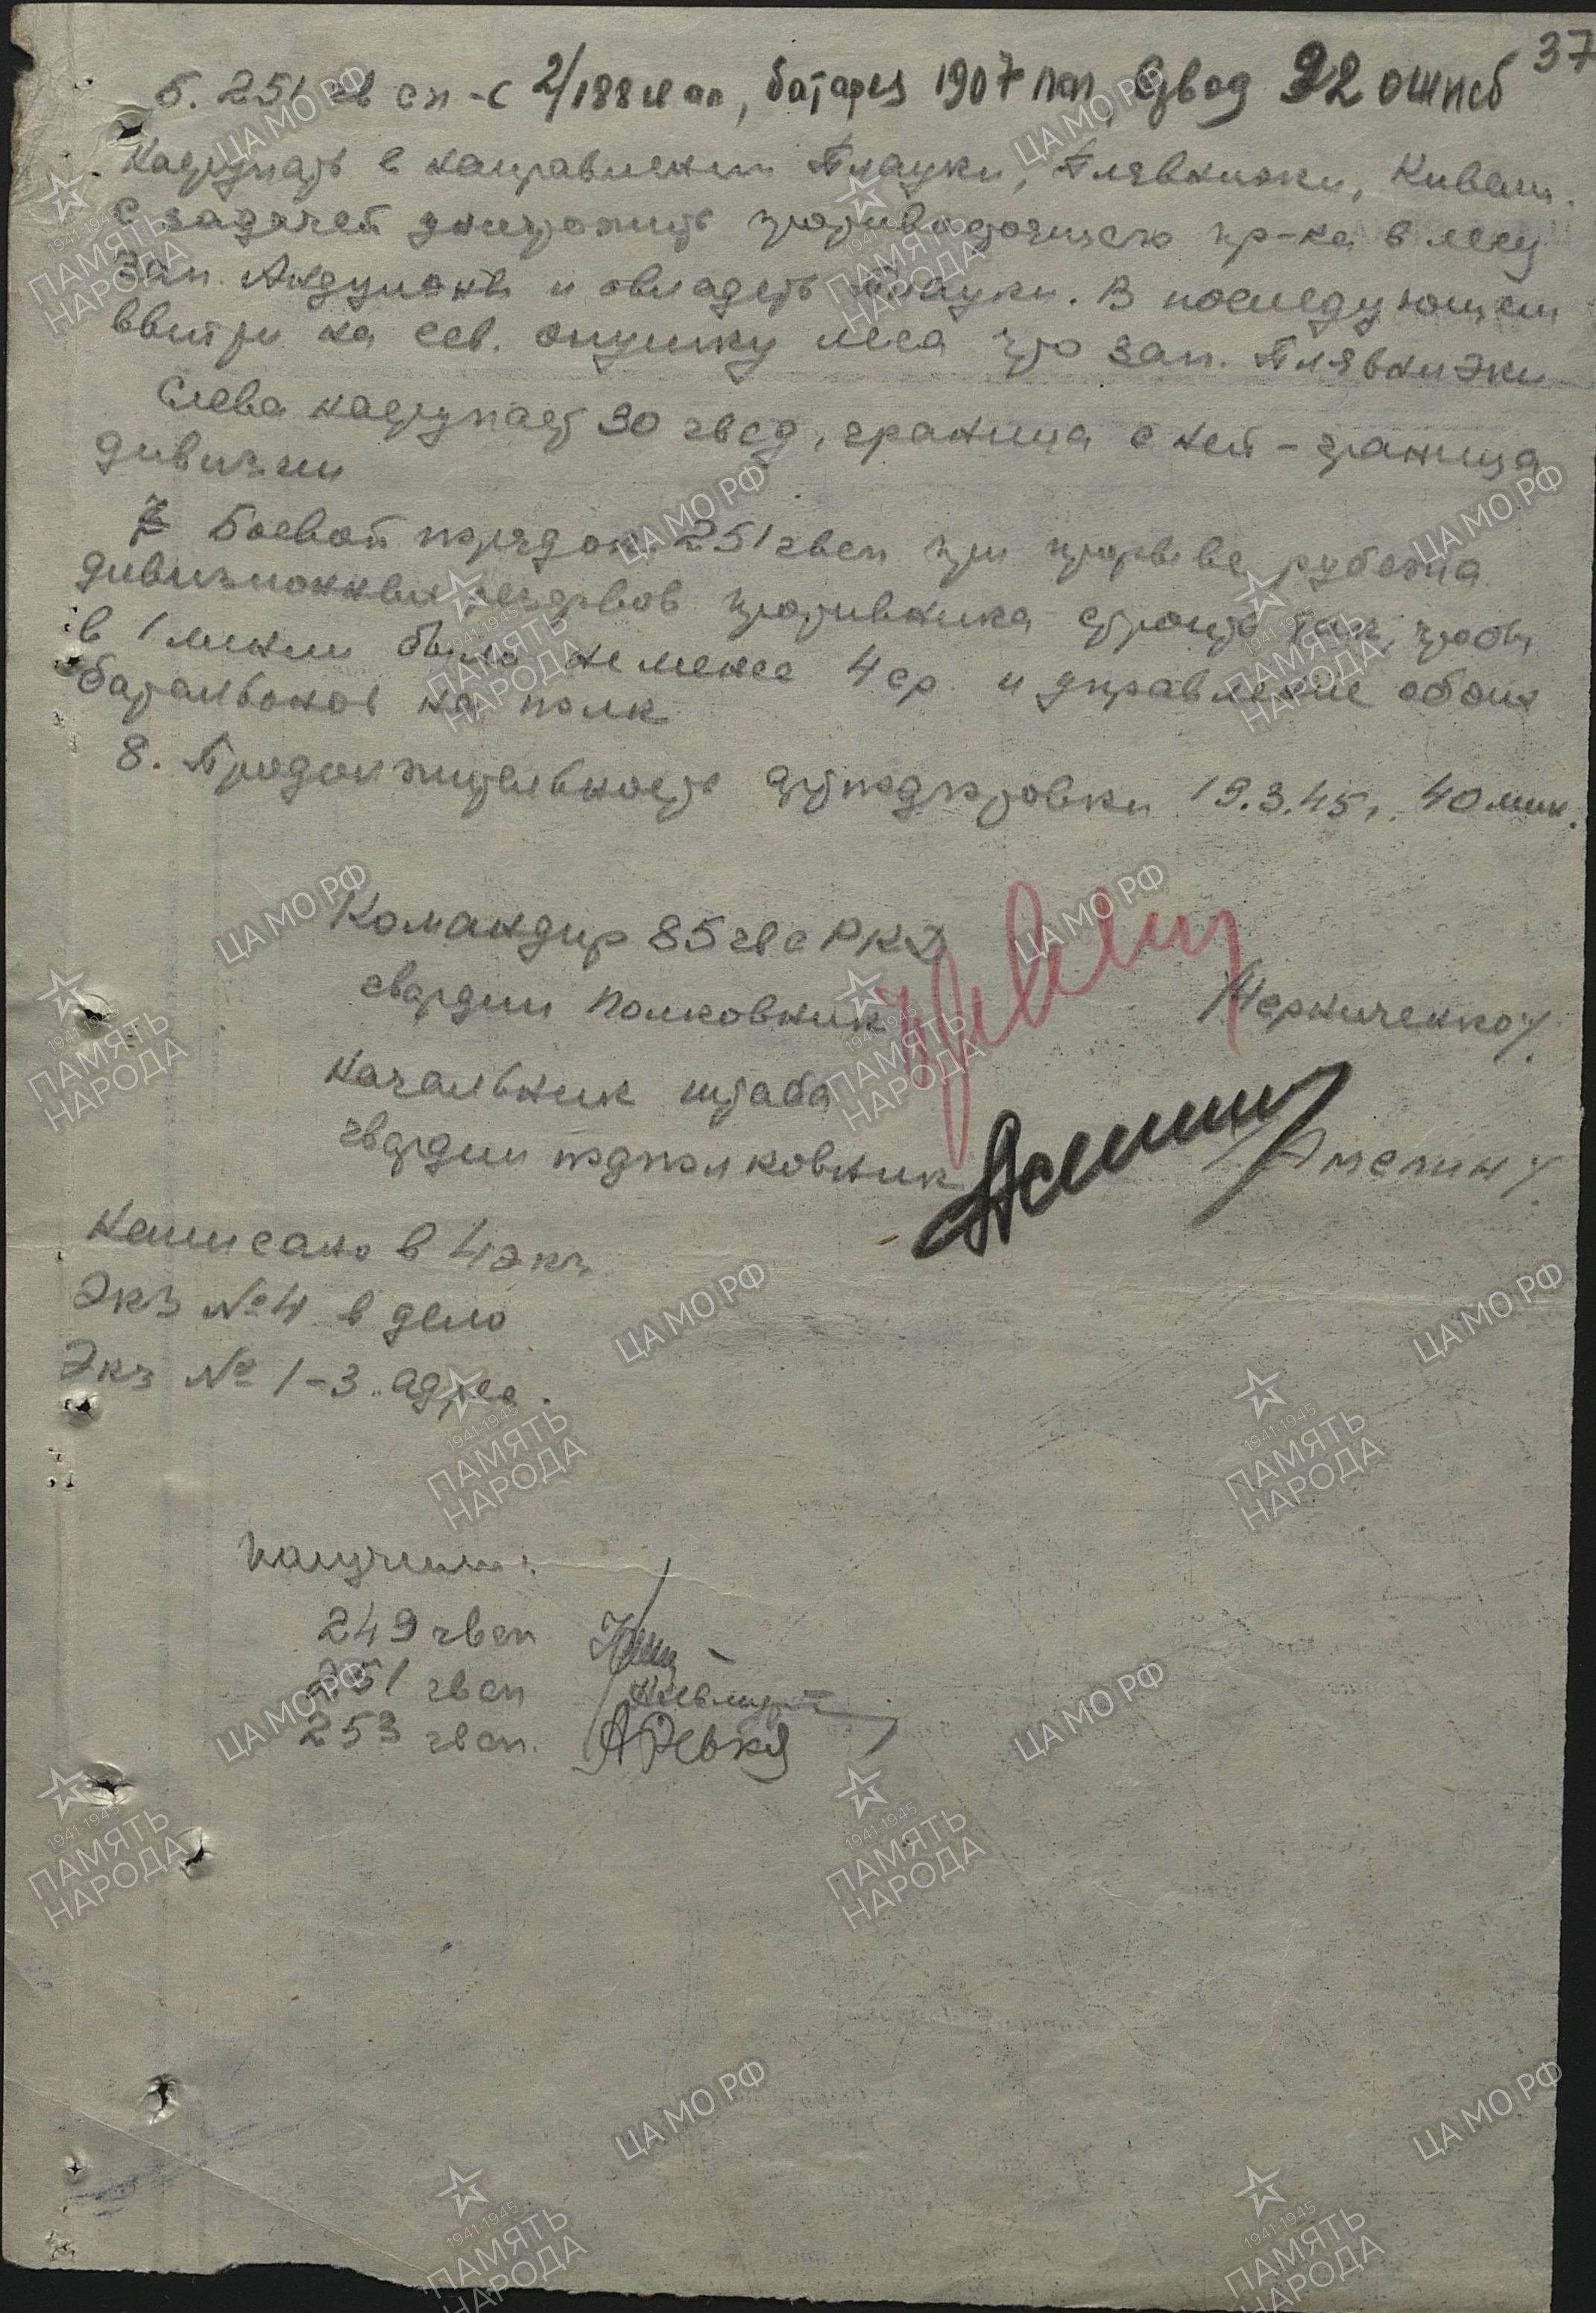 37
6. 251 гв сп - с 2/188 м ап, батарея 1907 пап, взвод 22 ошисб
Наступать в направлении Плауки, Плявниэки, Киваш.
С задачей уничтожить противостоящего пр-ка в лесу
зап. и овладеть Плауки. В последующем
выйти на сев. опушку леса что зап. Плявниэки
Слева наступает 30 гвсд, граница с ней - граница
дивизии
7 Боевой порядок 251 гвсп при прорыве рубежа
дивизионных резервов противника строить так, чтобы
в 1 линии было не менее 4 ср. и управление обоих
батальонов на полк
8. Продолжительность артподготовки 19.3.45 г. 40 мин.
Командир 85 гв с Р К Д
гвардии полковник /Черниченко/
Начальник штаба
гвардии подполковник
Написано в 4 экз
Экз № 4 в дело
Экз № 1-3 адрес.
Получили:
249 гвсп
251 гвсп
253 гвсп.
ЦА МО РФ
1941-1945
ПАМЯТЬ
НАРОДА